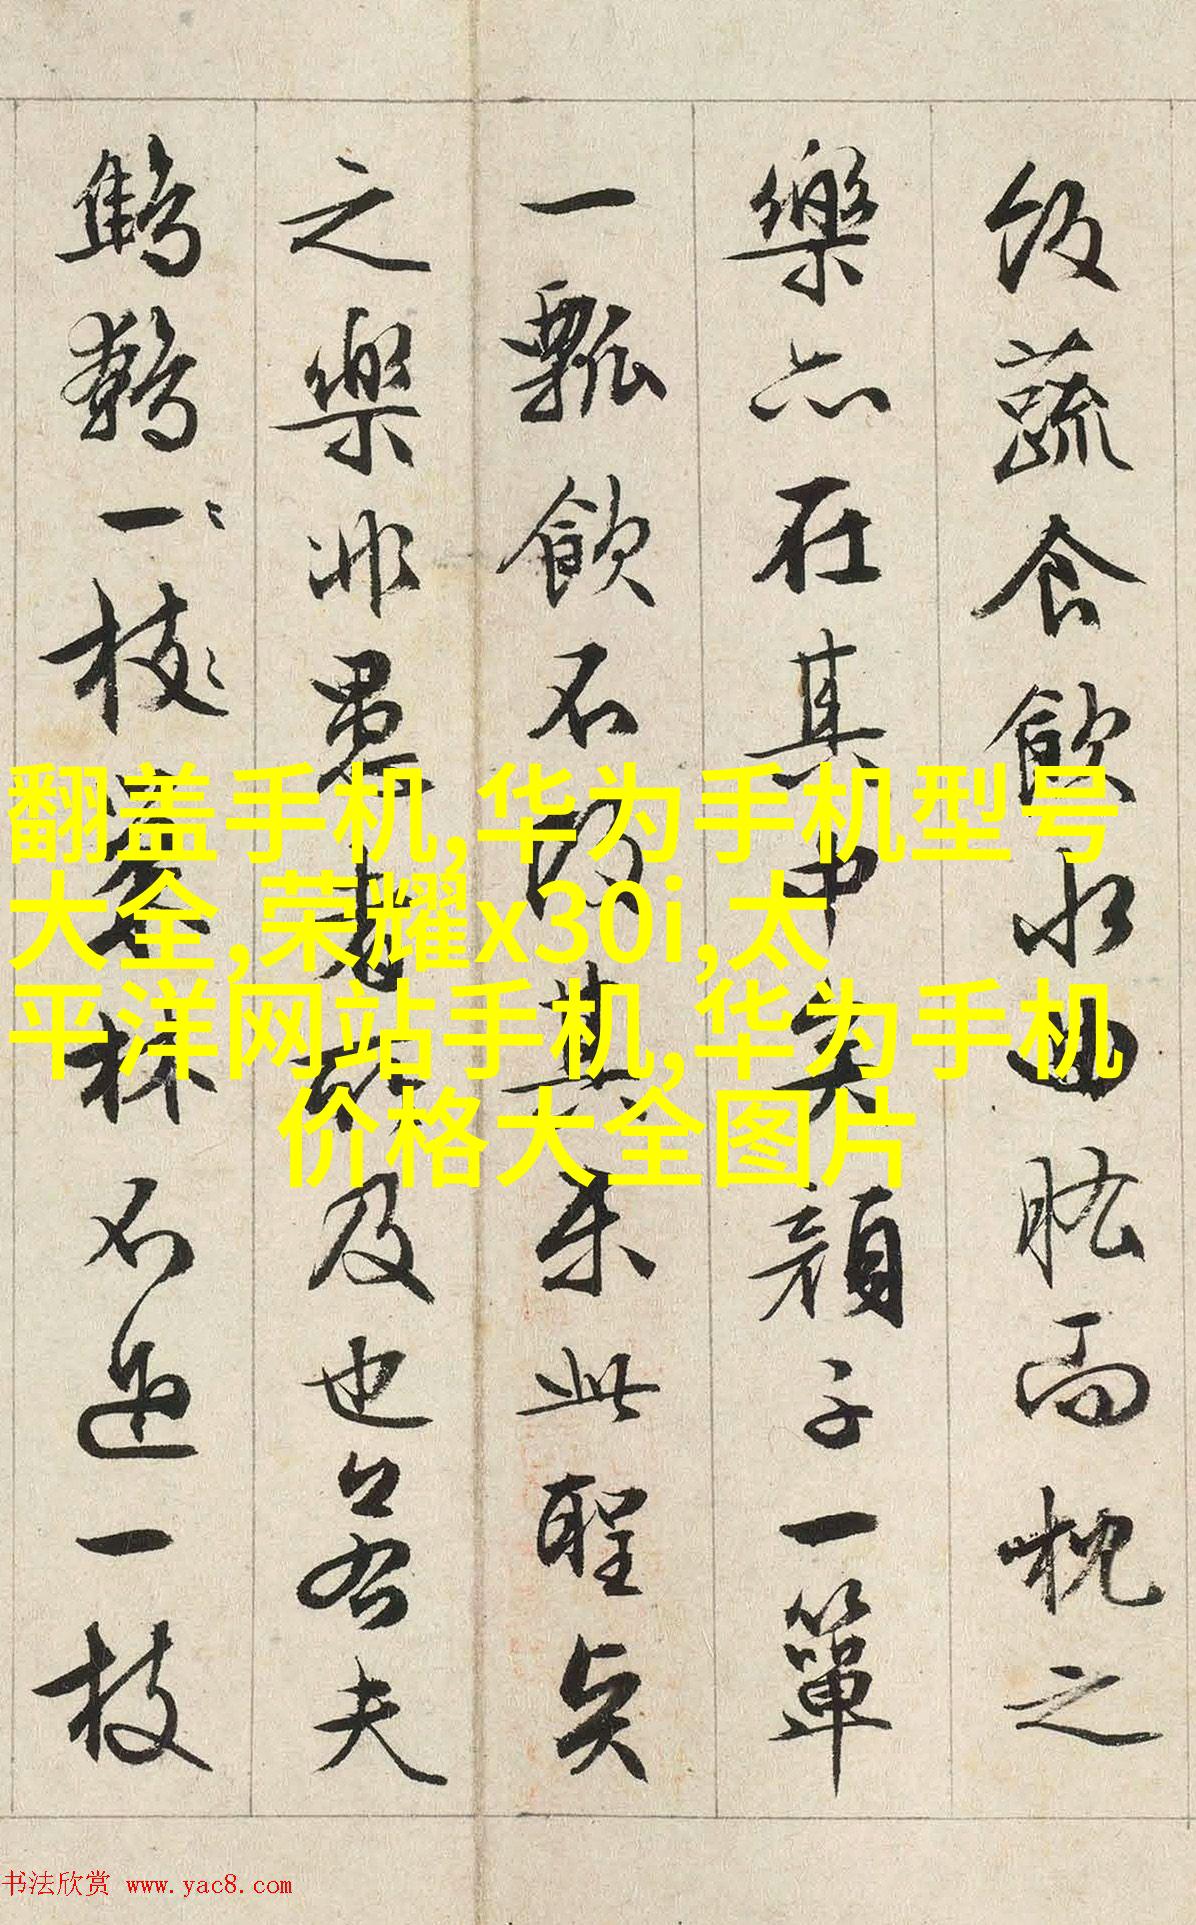 飯蔬食飲水曲肱而枕之
樂亦在其中矣顏子一簞
一瓢飲不改其樂此聖賢
之樂非愚者所及也若夫
鷦鷯一枝巢林不過一枝
翻盖手机,华为手机型号
大全,荣耀x30i,太
平洋网站手机,华为手机
价格大全图片
书法欣赏 www.yac8.com